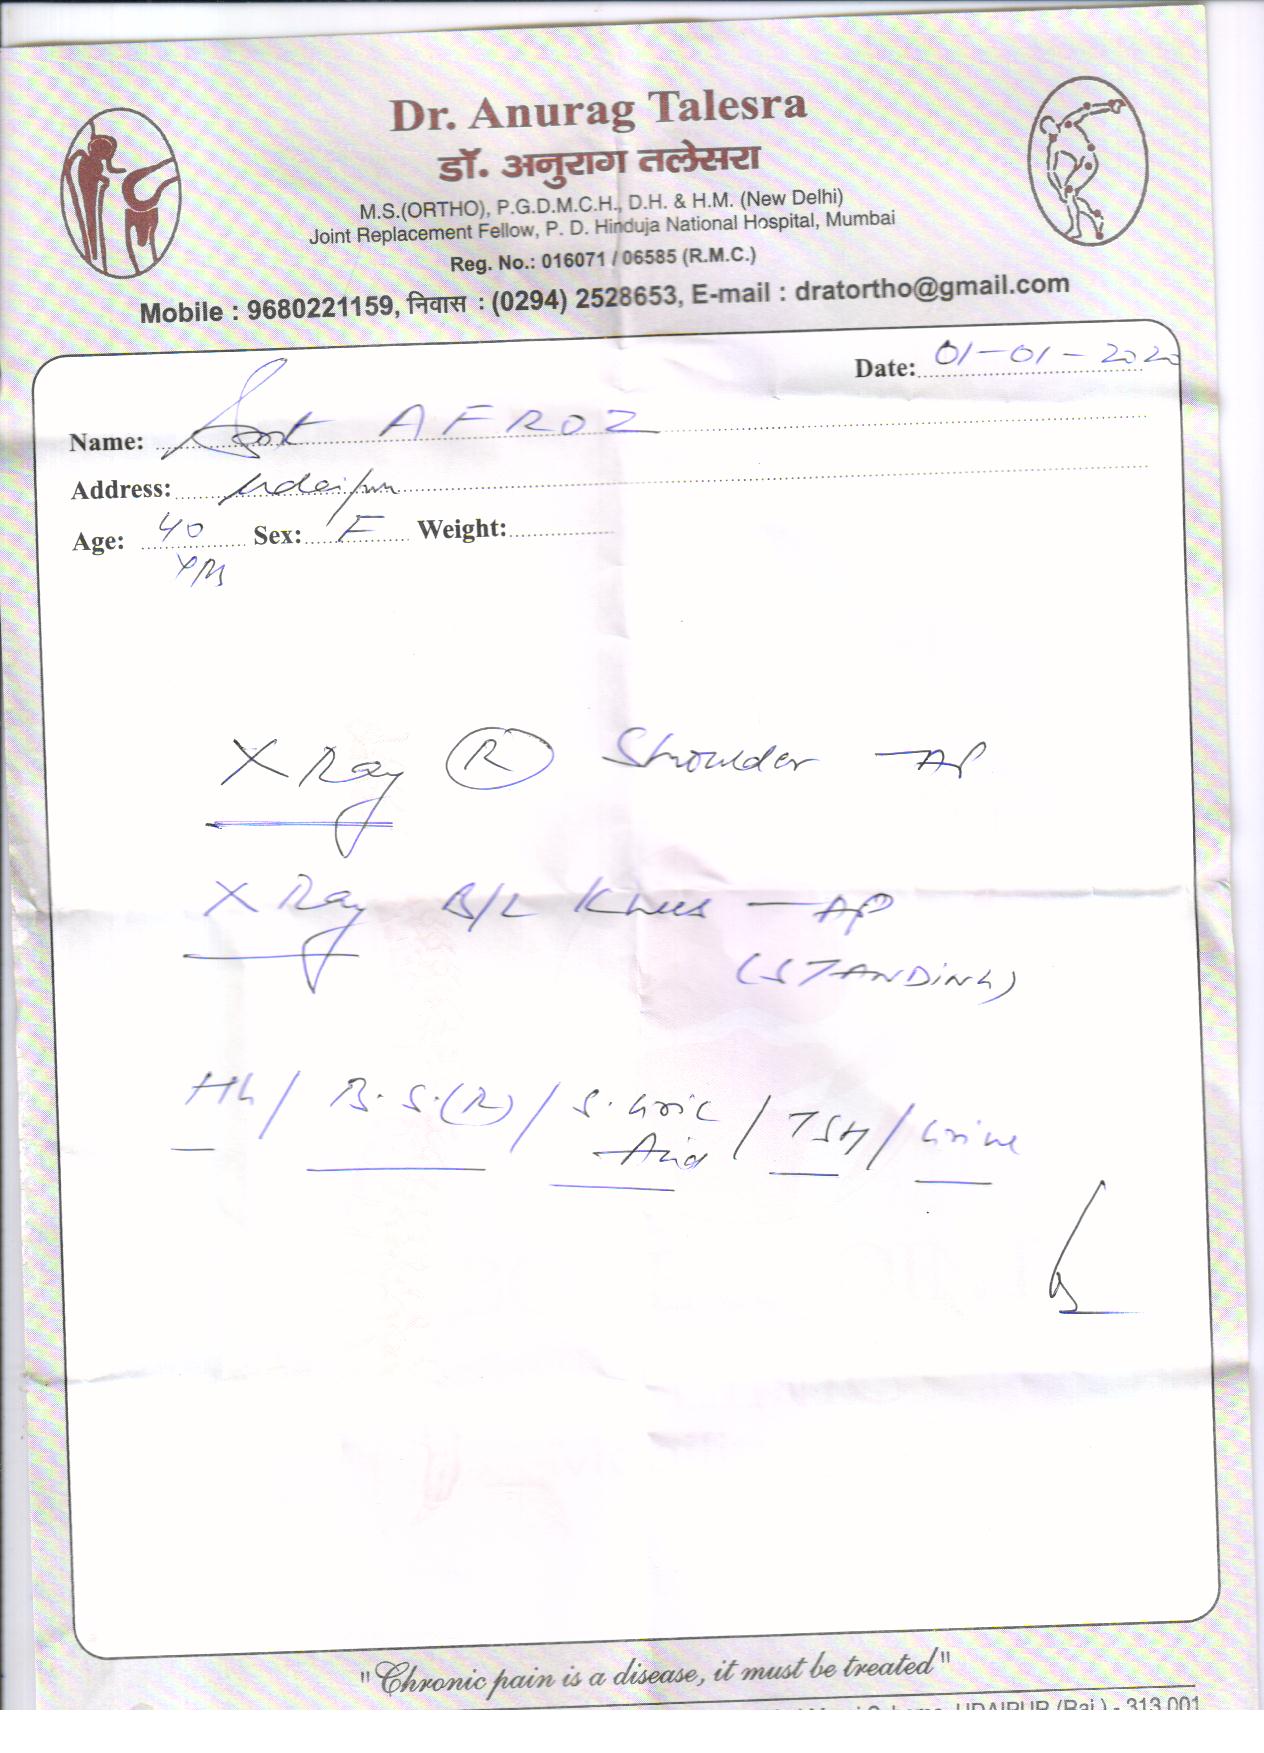 Dr. Anurag Talesra
डॉ. अनुराग तलेसरा
M.S.(ORTHO), P.G.D.M.C.H., D.H. & H.M. (New Delhi)
Joint Replacement Fellow, P. D. Hinduja National Hospital, Mumbai
Reg. No.: 016071 / 06585 (R.M.C.)
Mobile : 9680221159, निवास : (0294) 2528653, E-mail : dratortho@gmail.com
Date: 01-01-2020
Name: Smt AFROZ
Address: Udaipur
Age: 40 Sex: F Weight:
YRS
X Ray R Shoulder - AP
X Ray B/L Knees - AP
(STANDING)
Hb / B.S.(R) / S. Uric / TSH / Urine
Acid
"Chronic pain is a disease, it must be treated"
UDAIPUR (Raj.) - 313 001